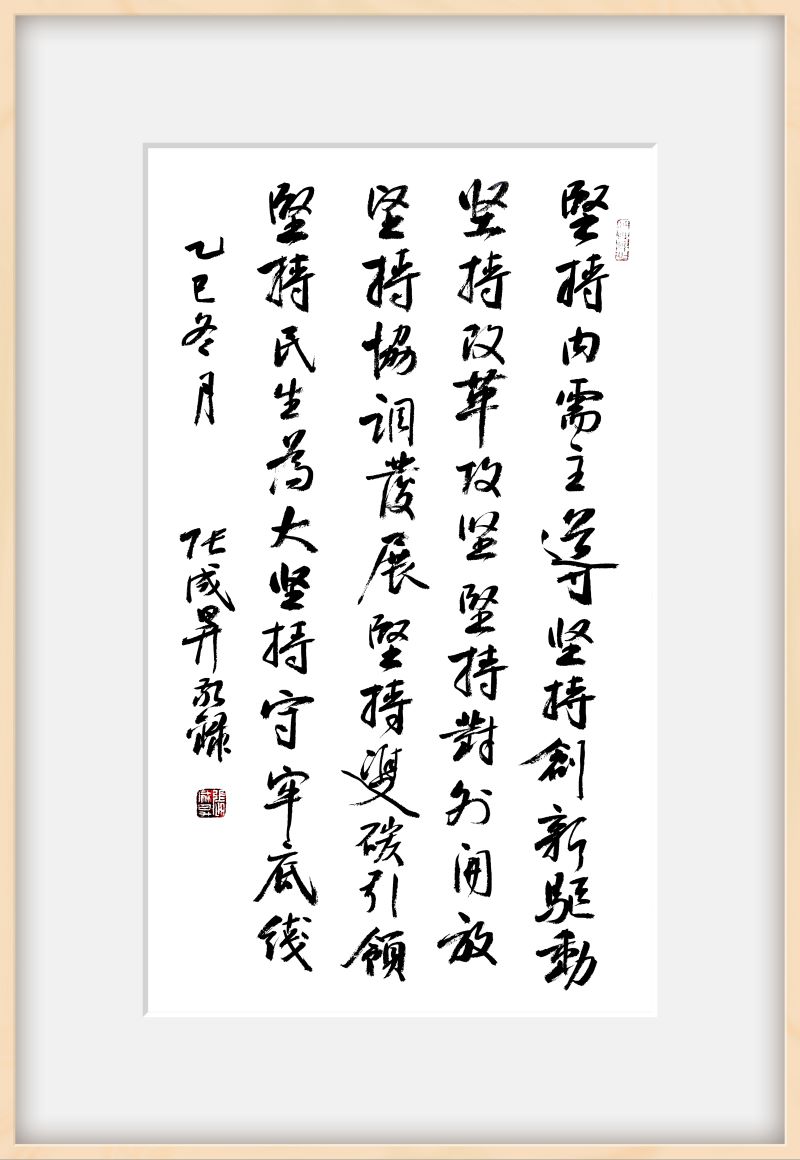 堅持内需主導坚持創新驅動
坚持改革攻坚堅持對外開放
坚持協調發展堅持雙碳引領
堅持民生為大坚持守牢底线
乙巳冬月
张成昇敬録